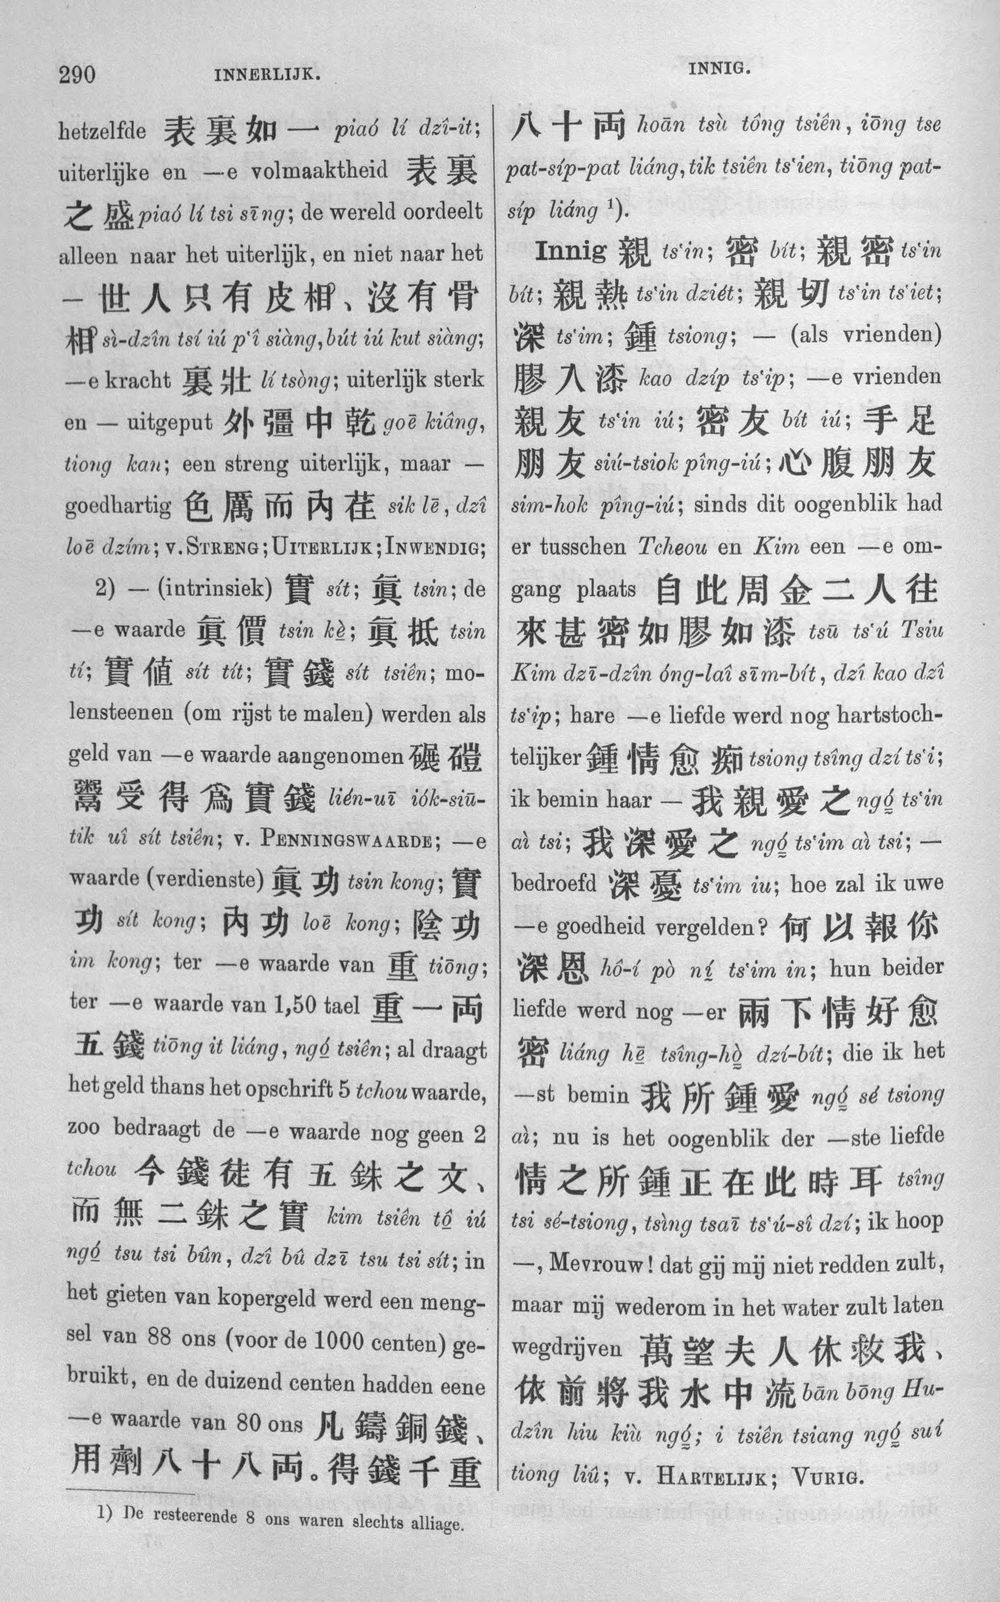 290
INNERLIJK.
INNIG.
hetzelfde 表裏如一 piaó lí dzî-it;
uiterlijke en —e volmaaktheid 表裏
之盛 piaó lí tsi sīng; de wereld oordeelt
alleen naar het uiterlijk, en niet naar het
— 世人只有皮相、沒有骨
相 sì-dzîn tsí iú p‘î siàng, bút iú kut siàng;
—e kracht 裏壯 lí tsòng; uiterlijk sterk
en — uitgeput 外彊中乾 goē kiâng,
tiong kan; een streng uiterlijk, maar —
goedhartig 色厲而內荏 sik lē, dzî
loē dzím; v. STRENG; UITERLIJK; INWENDIG;
2) — (intrinsiek) 實 sít;眞 tsin; de
—e waarde 眞價 tsin kè; 眞抵 tsin
tí; 實値 sít tít; 實錢 sít tsiên; mo-
lensteenen (om rijst te malen) werden als
geld van —e waarde aangenomen 碾磑
鬻受得爲實錢 lién-uī iók-siū-
tik uî sít tsiên; v. PENNINGSWAARDE; —e
waarde (verdienste) 眞功 tsin kong; 實
功 sít kong; 內功 loē kong; 陰功
im kong; ter —e waarde van 重 tiōng;
ter —e waarde van 1,50 tael 重一両
五錢 tiōng it liáng, ngó tsiên; al draagt
het geld thans het opschrift 5 tchou waarde,
zoo bedraagt de —e waarde nog geen 2
tchou 今錢徒有五銖之文、
而無二銖之實 kim tsiên tô iú
ngó tsu tsi bûn, dzî bû dzī tsu tsi sít; in
het gieten van kopergeld werd een meng-
sel van 88 ons (voor de 1000 centen) ge-
bruikt, en de duizend centen hadden eene
—e waarde van 80 ons 凡鑄銅錢、
用劑八十八両。得錢千重
1) De resteerende 8 ons waren slechts alliage.
八十両 hoān tsù tông tsiên, iōng tse
pat-síp-pat liáng, tik tsiên ts‘ien, tiōng pat-
síp liáng 1).
Innig 親 ts‘in; 密 bít; 親密 ts‘in
bít; 親熱 ts‘in dziét; 親切 ts‘in ts‘iet;
深 ts‘im; 鍾 tsiong; — (als vrienden)
膠入漆 kao dzíp ts‘ip; —e vrienden
親友 ts‘in iú; 密友 bít iú; 手足
朋友 siú-tsiok pîng-iú; 心腹朋友
sim-hok pîng-iú; sinds dit oogenblik had
er tusschen Tcheou en Kim een —e om-
gang plaats 自此周金二人往
來甚密如膠如漆 tsū ts‘ú Tsiu
Kim dzī-dzîn óng-laî sīm-bít, dzî kao dzî
ts‘ip; hare —e liefde werd nog hartstoch-
telijker 鍾情愈痴 tsiong tsîng dzí ts‘i;
ik bemin haar — 我親愛之 ngó ts‘in
aì tsi; 我深愛之 ngó ts‘im aì tsi; —
bedroefd 深憂 ts‘im iu; hoe zal ik uwe
—e goedheid vergelden? 何以報你
深恩 hô-í pò ní ts‘im in; hun beider
liefde werd nog —er 兩下情好愈
密 liáng hē tsîng-hò dzí-bít; die ik het
—st bemin 我所鍾愛 ngó sé tsiong
aì; nu is het oogenblik der —ste liefde
情之所鍾正在此時耳 tsîng
tsi sé-tsiong, tsìng tsaī ts‘ú-sî dzí; ik hoop
—, Mevrouw! dat gij mij niet redden zult,
maar mij wederom in het water zult laten
wegdrijven 萬望夫人休救我、
依前將我水中流 bān bōng Hu-
dzîn hiu kiù ngó; i tsiên tsiang ngó suí
tiong liû; v. HARTELIJK; VURIG.